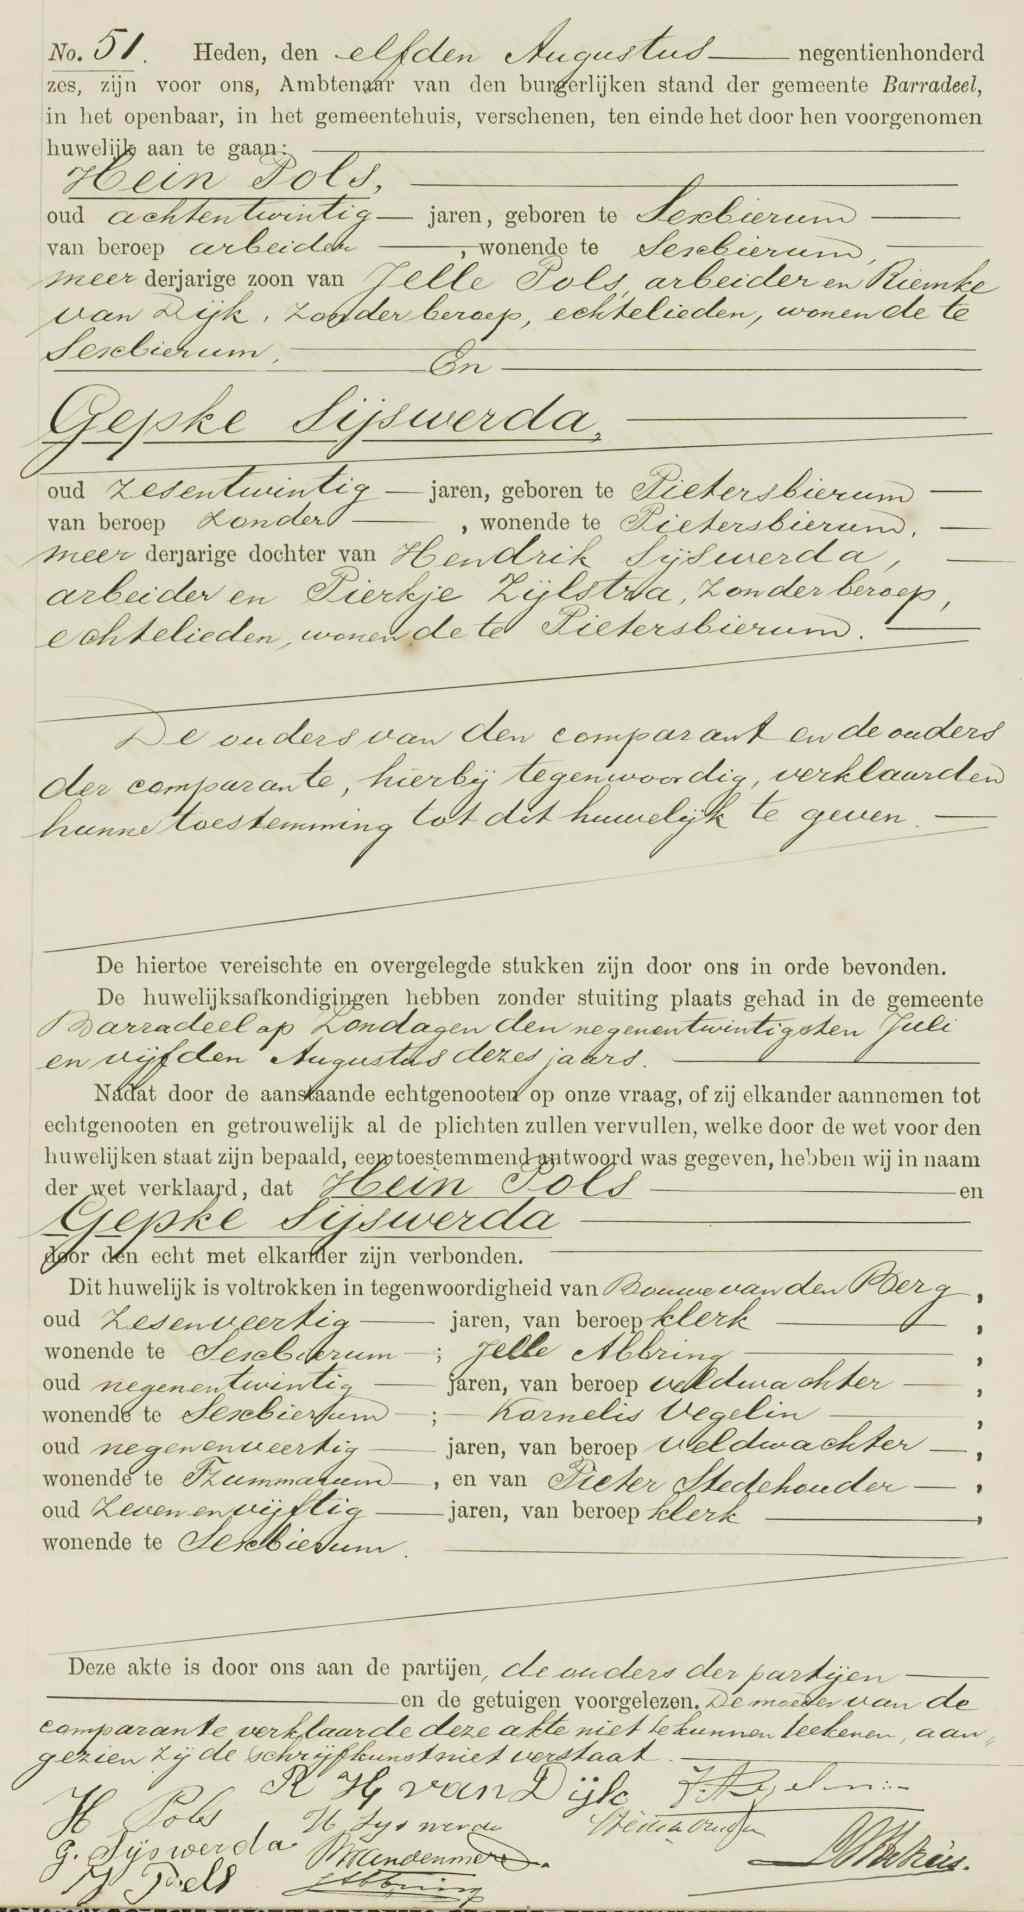 No. 51. Heden, den elfden Augustus negentienhonderd
zes, zijn voor ons, Ambtenaar van den burgerlijken stand der gemeente Barradeel,
in het openbaar, in het gemeentehuis, verschenen, ten einde het door hen voorgenomen
huwelijk aan te gaan:
Hein Pols,
oud achtentwintig jaren, geboren te Sexbierum
van beroep arbeider, wonende te Sexbierum,
meer derjarige zoon van Jelle Pols, arbeider en Riemke
van Dijk, zonder beroep, echtelieden, wonende te
Sexbierum.
En
Gepke Sijswerda,
oud zesentwintig jaren, geboren te Pietersbierum
van beroep zonder, wonende te Pietersbierum,
meer derjarige dochter van Hendrik Sijswerda,
arbeider en Pierkje Zijlstra, zonder beroep,
echtelieden, wonende te Pietersbierum.
De ouders van den comparant en de ouders
der comparante, hierbij tegenwoordig, verklaarden
hunne toestemming tot dit huwelijk te geven.
De hiertoe vereischte en overgelegde stukken zijn door ons in orde bevonden.
De huwelijksafkondigingen hebben zonder stuiting plaats gehad in de gemeente
Barradeel op Zondagen den negenentwintigsten Juli
en vijfden Augustus dezes jaars.
Nadat door de aanstaande echtgenooten op onze vraag, of zij elkander aannemen tot
echtgenooten en getrouwelijk al de plichten zullen vervullen, welke door de wet voor den
huwelijken staat zijn bepaald, een toestemmend antwoord was gegeven, hebben wij in naam
der wet verklaard, dat Hein Pols en
Gepke Sijswerda
door den echt met elkander zijn verbonden.
Dit huwelijk is voltrokken in tegenwoordigheid van Bouwe van den Berg,
oud zesenveertig jaren, van beroep klerk,
wonende te Sexbierum; Jelle Abbring,
oud negenentwintig jaren, van beroep veldwachter,
wonende te Sexbierum; Kornelis Vegelin,
oud negenenveertig jaren, van beroep veldwachter,
wonende te Tzummarum, en van Pieter Stedehouder,
oud zevenenvijftig jaren, van beroep klerk,
wonende te Sexbierum.
Deze akte is door ons aan de partijen, de ouders der partijen
en de getuigen voorgelezen. De moeder van de
comparante verklaarde deze akte niet te kunnen teekenen, aan„
gezien zij de schrijfkunst niet verstaat.
H Pols R H van Dijk
G. Sijswerda H Sijswerda
J Pols
J Abbring